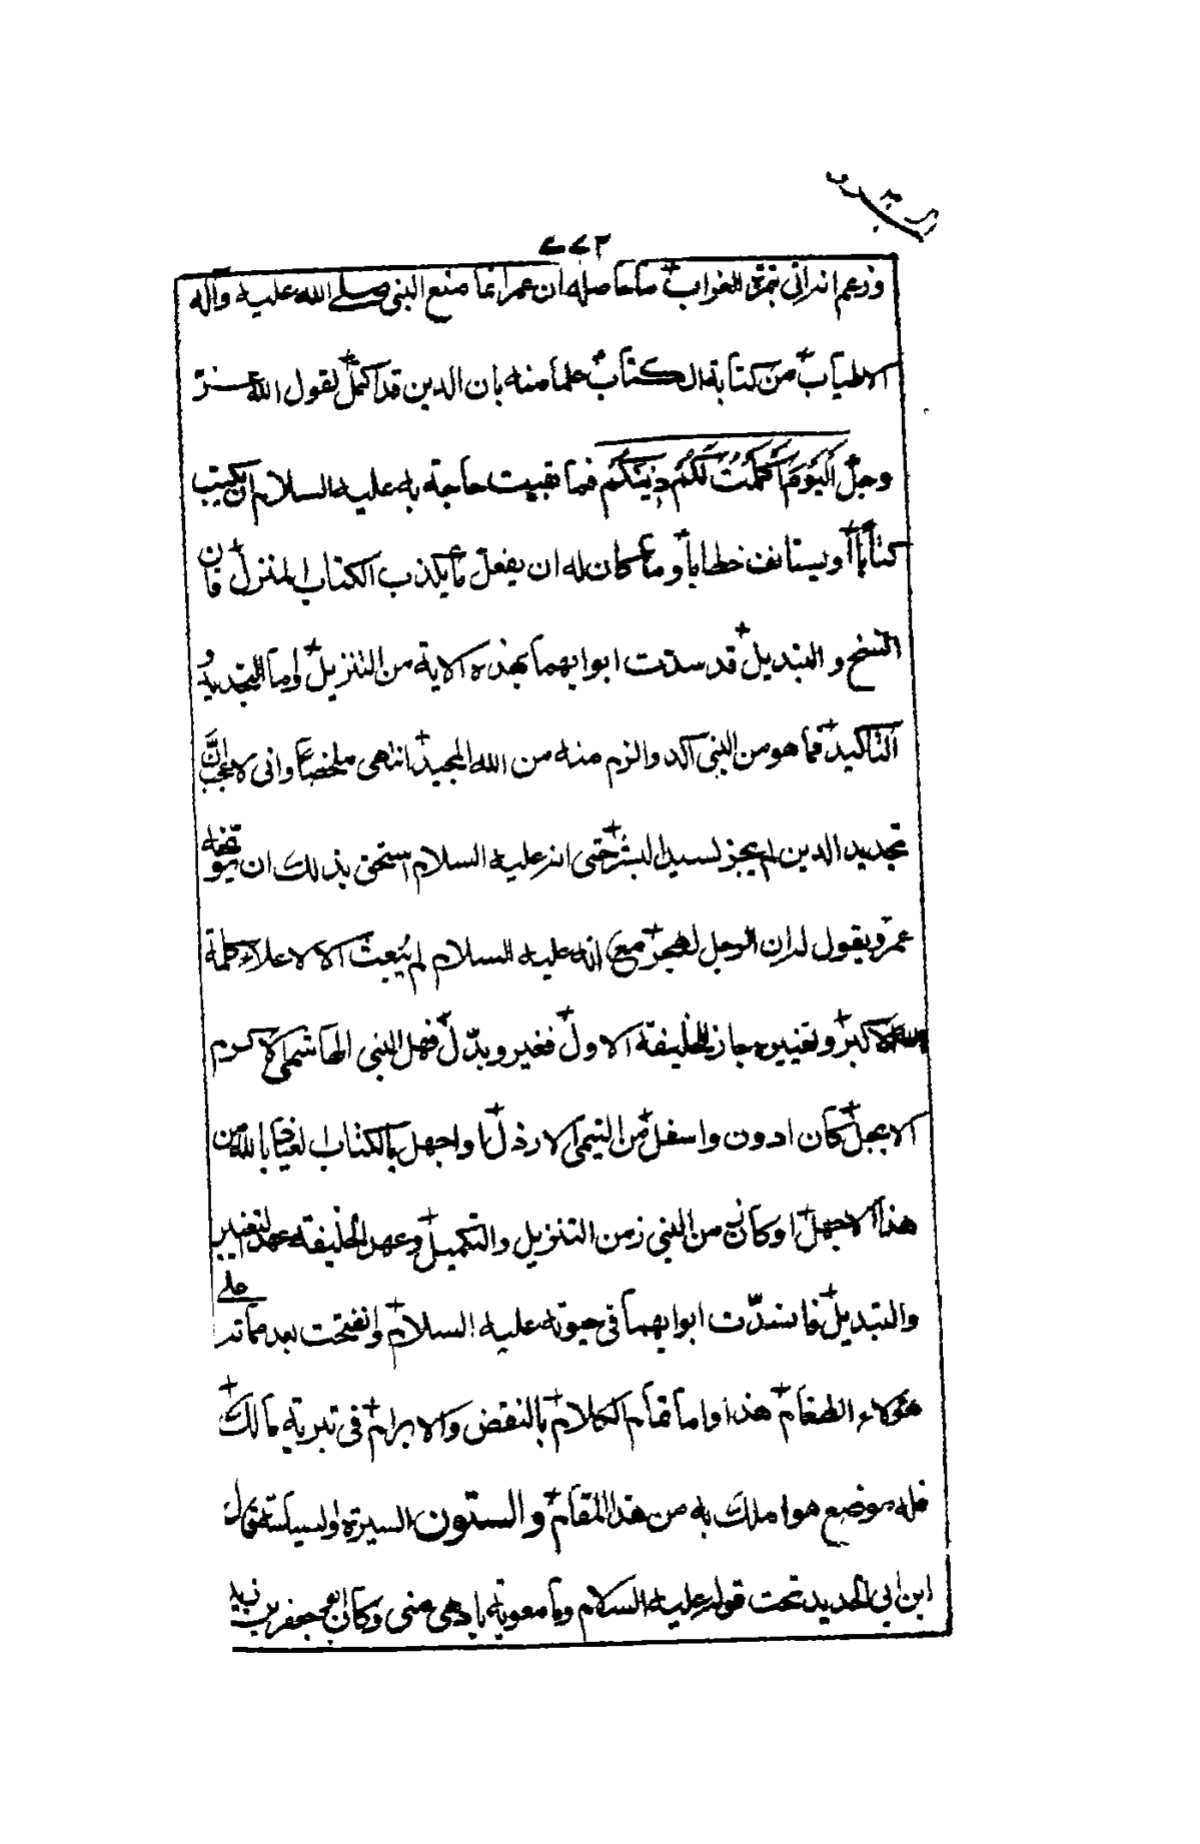 ٧٧٢
وزعم انه اتى بتمرة الغراب ما حاصله ان عمر انما منع النبى صلى الله عليه وآله
الاطياب من كتابة الكتاب علما منه بان الدين قد اكمل لقول الله عز
وجل اَلْيَوْمَ اَكْمَلْتُ لَكُمْ دِيْنَكُمْ فما بقيت حاجة به عليه السلام ان يكتب
كتابا او يستانف خطابا وما كان له ان يفعل ما يكذب الكتاب المنزل فان
النسخ والتبديل قد سدت ابوابهما بهذه الاية من التنزيل واما التجديد و
التاكيد فما هو من النبى آكد والزم منه من الله المجيد انتهى ملخصا وانى لاعجب ان
تجديد الدين لم يجز لسيد البشر حتى انه عليه السلام استحق بذلك ان
عمر ويقول له ان الرجل ليهجر مع انه عليه السلام لم يُبعث الا لاعلاء كلمة
الله الاكبر وتغييره جاز للخليفة الاول فغير وبدّل فهل النبى الهاشمى الاكرم
الابجل كان ادون واسفل من التيمى الارذل او اجهل بالكتاب العياذ بالله من
هذا الاجهل او كان من النبى زمن التنزيل والتكميل وعهد الخليفة عهد التغيير
والتبديل فانسدّت ابوابهما فى حيوته عليه السلام وانفتحت بعد مماته على
هؤلاء الطغام هذا واما تمام الكلام بالنقض والابرام فى تبرية مالك
فله موضع هو املك به من هذا المقام والستون السيرة والسياسة قال
ابن ابى الحديد تحت قوله عليه السلام وما معوية بادهى منى وكان ابو جعفر بن